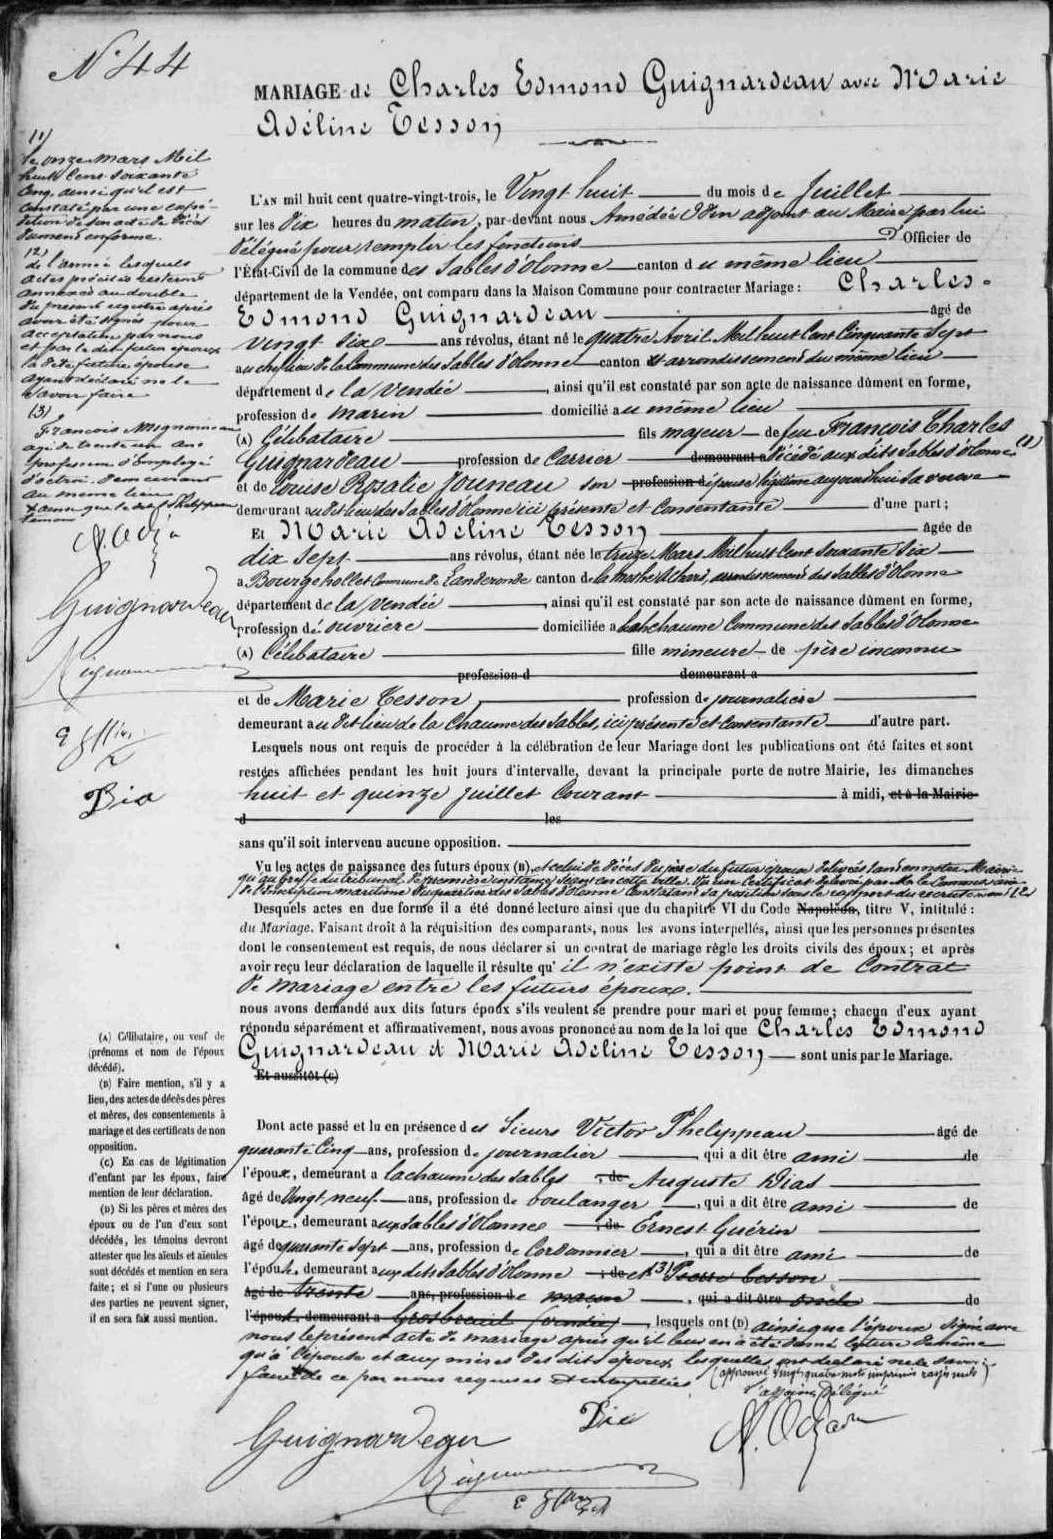 N° 44
MARIAGE de Charles Edmond Guignardeau avec Marie
Adéline Tesson
(1)
le onze mars Mil
huit Cent soixante
Cinq, ainsi qu'il est
Constaté par une expé-
dition de son acte de décès
dument en forme.
(2)
de l'année lesquels
actes précités resteront
annexés au double
du present registre après
avoir été signés pour
acceptation par nous
et par le dit futur époux
la dite future épouse
ayant déclaré ne le
savoir faire
(3)
François Mignonneau
agé de trente un ans
profession d'Employé
d'octroi. Demeurant
au meme lieu
témoin
Guignardeau
Dia
L'AN mil huit cent quatre-vingt-trois, le Vingt huit du mois de Juillet
sur les dix heures du matin, par-devant nous Amédée Odin adjoint au Maire par lui
délégué pour remplir les fonctions d'Officier de
l'État-Civil de la commune des Sables d'Olonne canton du même lieu
département de la Vendée, ont comparu dans la Maison Commune pour contracter Mariage : Charles-
Edmond Guignardeau âgé de
vingt six ans révolus, étant né le quatre Avril Mil huit Cent Cinquante Sept
au chef lieu de la Commune des Sables d'Olonne canton et arrondissement du même lieu
département de la Vendée, ainsi qu'il est constaté par son acte de naissance dûment en forme,
profession de marin domicilié au même lieu
(A) Célibataire fils majeur de feu François Charles
Guignardeau profession de Carrier demeurant a décédé aux dits Sables d'Olonne (1)
et de Louise Rosalie Jouneau son profession d épouse légitime aujourd'hui sa veuve
demeurant au dit lieu des Sables d'Olonne ici présente et Consentante d'une part ;
Et Marie Adeline Tesson âgée de
dix sept ans révolus, étant née le treize Mars Mil huit Cent Soixante Six
a Commune de Landeronde canton de la Mothe Achard, arrondissement des Sables d'Olonne
département de la Vendée, ainsi qu'il est constaté par son acte de naissance dûment en forme,
profession de ouvriere domiciliée a Lachaume Commune des Sables d'Olonne
(A) Célibataire fille mineure de père inconnu
profession d demeurant a
et de Marie Tesson profession de journalière
demeurant au dit lieu de la Chaume des Sables, ici présente et Consentante d'autre part.
Lesquels nous ont requis de procéder à la célébration de leur Mariage dont les publications ont été faites et sont
restées affichées pendant les huit jours d'intervalle, devant la principale porte de notre Mairie, les dimanches
huit et quinze Juillet Courant à midi, et à la Mairie
d les
sans qu'il soit intervenu aucune opposition.
Vu les actes de naissance des futurs époux (B), et celui de décès du père du futur époux délivrés tant en notre Mairie
qu'au greffe du tribunal de première instance séant en cette ville. Vu un Certificat délivré par Mr le Commissaire
de l'inscription maritime du quartier des Sables d'Olonne Constatant sa position sous le rapport du recrutement (2)
Desquels actes en due forme il a été donné lecture ainsi que du chapitre VI du Code Napoléon, titre V, intitulé :
du Mariage. Faisant droit à la réquisition des comparants, nous les avons interpellés, ainsi que les personnes présentes
dont le consentement est requis, de nous déclarer si un contrat de mariage règle les droits civils des époux ; et après
avoir reçu leur déclaration de laquelle il résulte qu' il n'existe point de Contrat
de mariage entre les futurs époux.
nous avons demandé aux dits futurs époux s'ils veulent se prendre pour mari et pour femme ; chacun d'eux ayant
répondu séparément et affirmativement, nous avons prononcé au nom de la loi que Charles Edmond
Guignardeau et Marie Adeline Tesson sont unis par le Mariage.
Et aussitôt (C)
(A) Célibataire, ou veuf de
(prénoms et nom de l'époux
décédé).
(B) Faire mention, s'il y a
lieu, des actes de décès des pères
et mères, des consentements à
mariage et des certificats de non
opposition.
(C) En cas de légitimation
d'enfant par les époux, faire
mention de leur déclaration.
(D) Si les pères et mères des
époux ou de l'un d'eux sont
décédés, les témoins devront
attester que les aïeuls et aïeules
sont décédés et mention en sera
faite ; et si l'une ou plusieurs
des parties ne peuvent signer,
il en sera fait aussi mention.
Dont acte passé et lu en présence des Sieurs Victor Phelippeau âgé de
quarante Cinq ans, profession de journalier, qui a dit être ami de
l'époux, demeurant a lachaume des Sables ; de Auguste Dias
âgé de Vingt neuf ans, profession de boulanger, qui a dit être ami de
l'époux, demeurant aux Sables d'Olonne ; de Ernest Guérin
âgé de quarante Sept ans, profession de Cordonnier, qui a dit être ami de
l'épouse, demeurant aux dits Sables d'Olonne ; de et (3) Pierre Tesson
âgé de trente ans, profession de maçon, qui a dit être oncle de
l'épouse, demeurant a Grosbreuil (Vendée), lesquels ont (D) ainsi que l'époux signé avec
nous le présent acte de mariage après qu'il leur en a été donné lecture de même
qu'à l'épouse et aux mères des dits époux lesquelles ont déclaré ne le savoir
faire de ce par nous requises et interpellées (approuvé vingt quatre mots imprimés rayés nuls)
délégué
Guignardeau
Dia